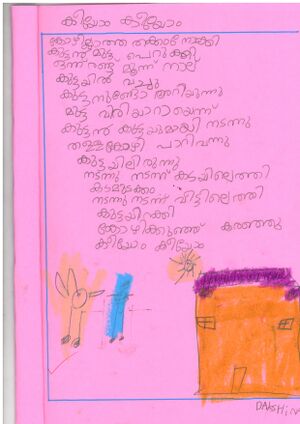 കീയോം കീയോം
കോഴിയില്ലാത്ത തക്കംനോക്കി
കുട്ടൻ മുട്ട പെറുക്കി
ഒന്ന് രണ്ട് മൂന്ന് നാല്
കുട്ടയിൽ വച്ചു
കുട്ടനുണ്ടോ അറിയുന്നു
മുട്ട വിരിയാറായെന്ന്
കുട്ടൻ കുട്ടയുമായി നടന്നു
തള്ളക്കോഴി പാറിവന്നു
കുട്ടയിലിരുന്നു
നടന്നു നടന്ന് കടയിലെത്തി
കടമുടക്കം
നടന്നു നടന്ന് വീട്ടിലെത്തി
കുട്ടയിറക്കി
കോഴിക്കുഞ്ഞ് കരഞ്ഞു
കീയോം കീയോം